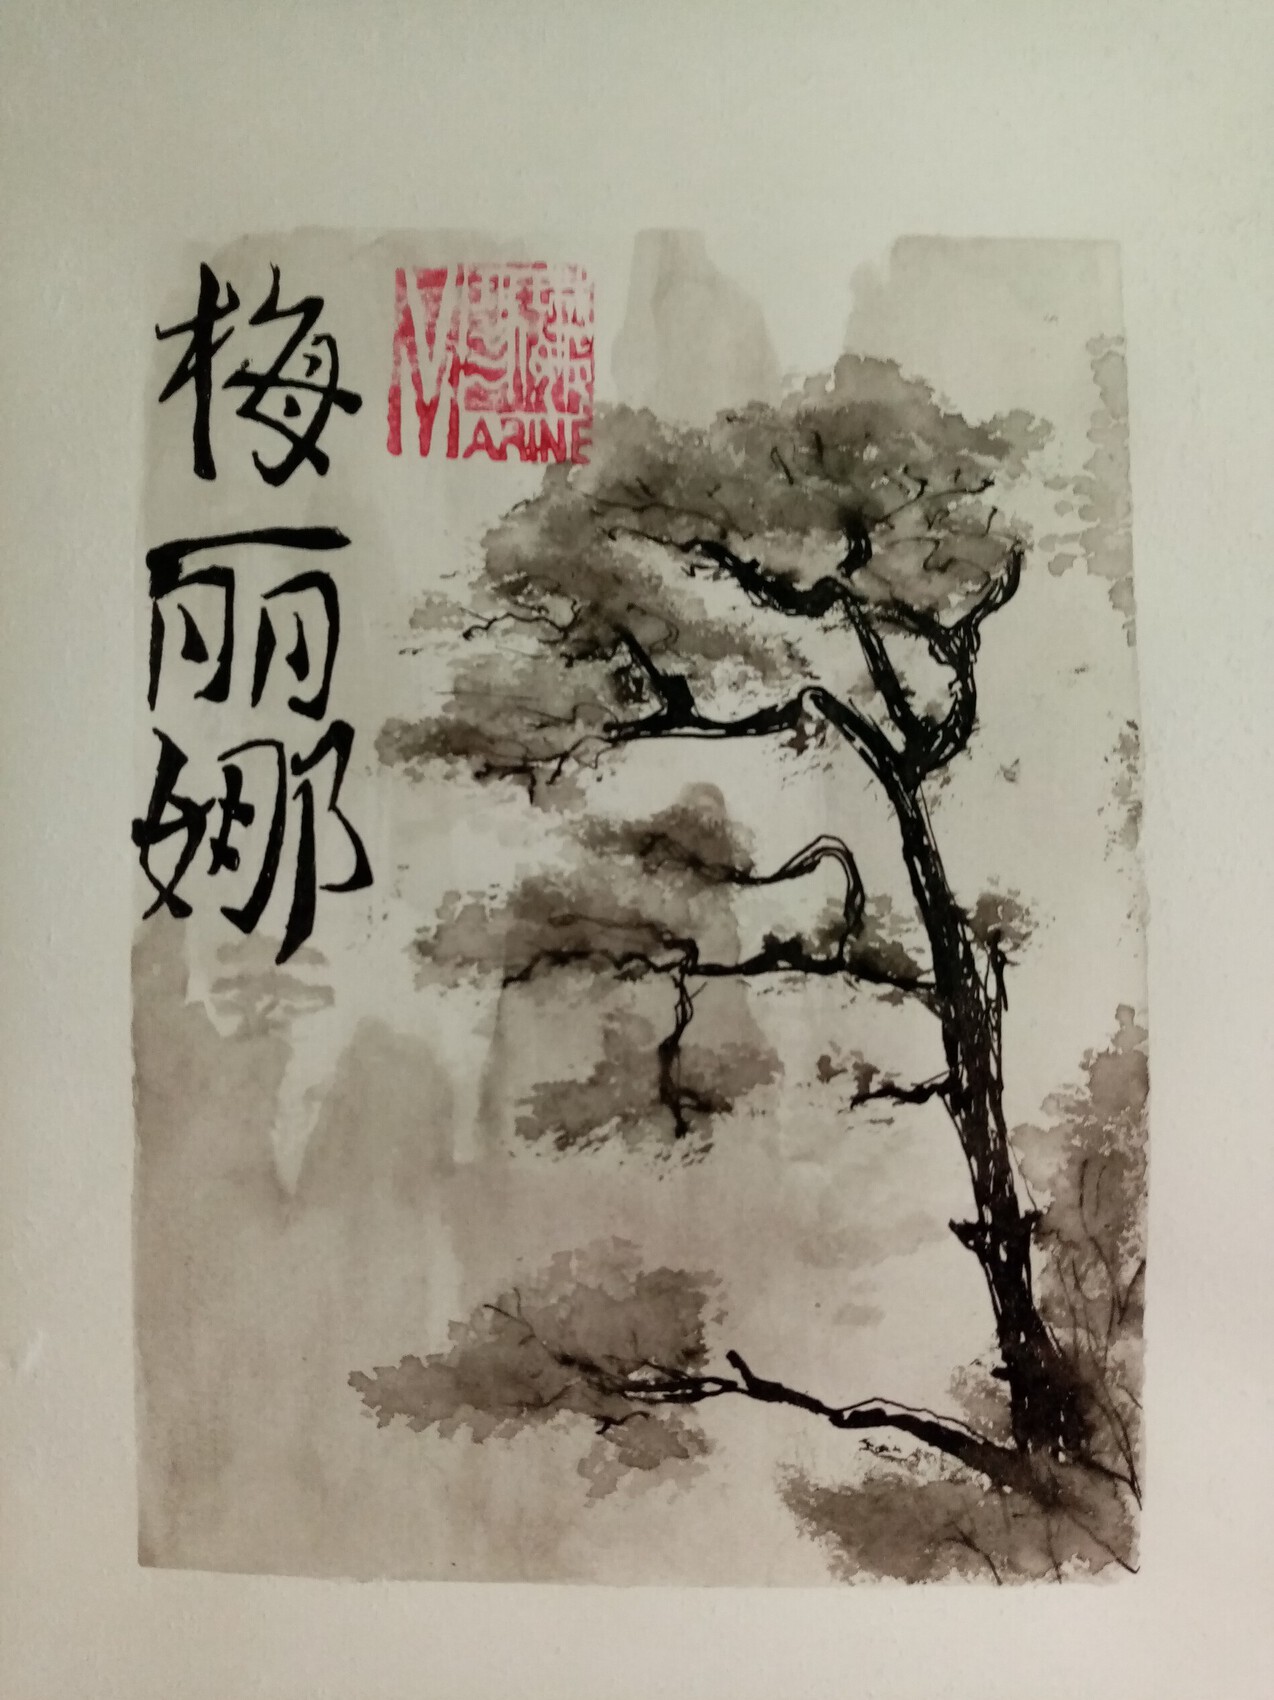 梅丽娜
MARINE